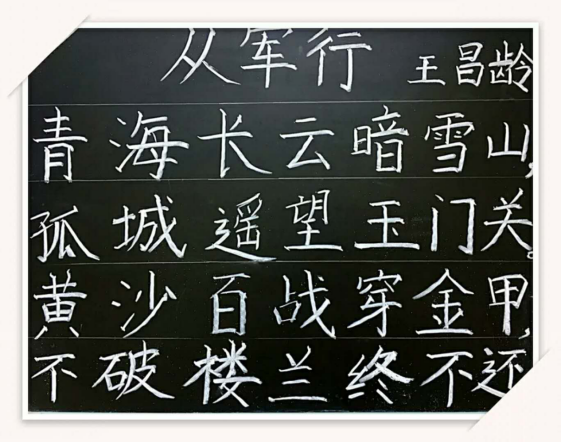 从军行 王昌龄
青海长云暗雪山,
孤城遥望玉门关。
黄沙百战穿金甲,
不破楼兰终不还